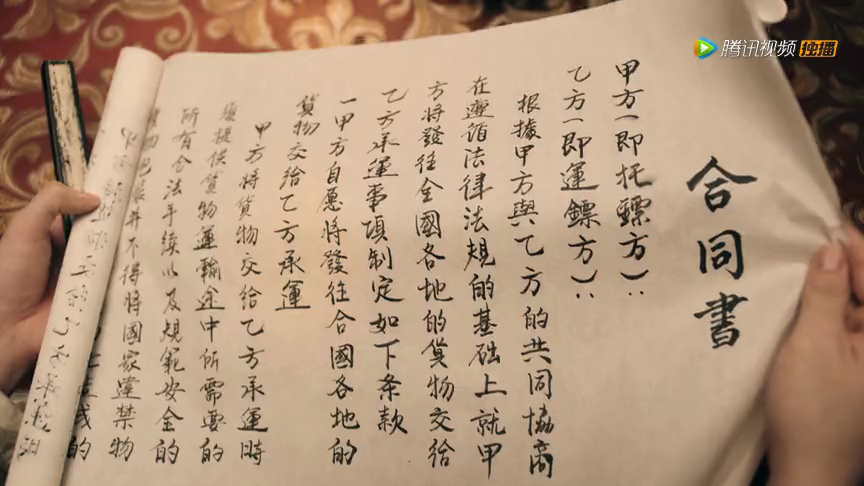 腾讯视频 独播
合同書
甲方(即托鏢方):
乙方(即運鏢方):
根據甲方與乙方的共同協商
在遵循法律法規的基础上就甲
方將發往全國各地的貨物交给
乙方承運事項制定如下条款
一甲方自愿將發往合國各地的
貨物交给乙方承運
甲方將貨物交给乙方承運時
須提供貨物運輸途中所需要的
所有合法手续以及規範安全的
并不得將國家違禁物
的